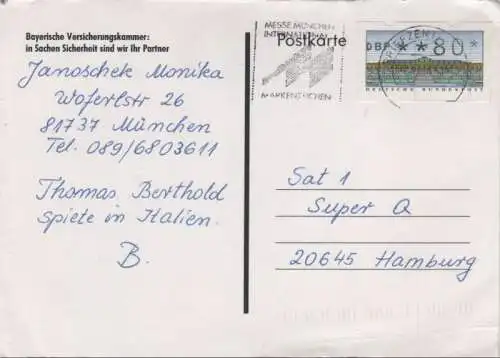 Bayerische Versicherungskammer:
in Sachen Sicherheit sind wir Ihr Partner
Janoschek Monika
Wofertstr 26
81737 München
Tel. 089/6803611
Thomas Berthold
spiete in Italien.
B.
MESSE MÜNCHEN
INTERNATIONAL
MARKENZEICHEN
Postkarte
BRIEFZENTRUM
DBP **80*
DEUTSCHE BUNDESPOST
Sat 1
Super Q
20645 Hamburg